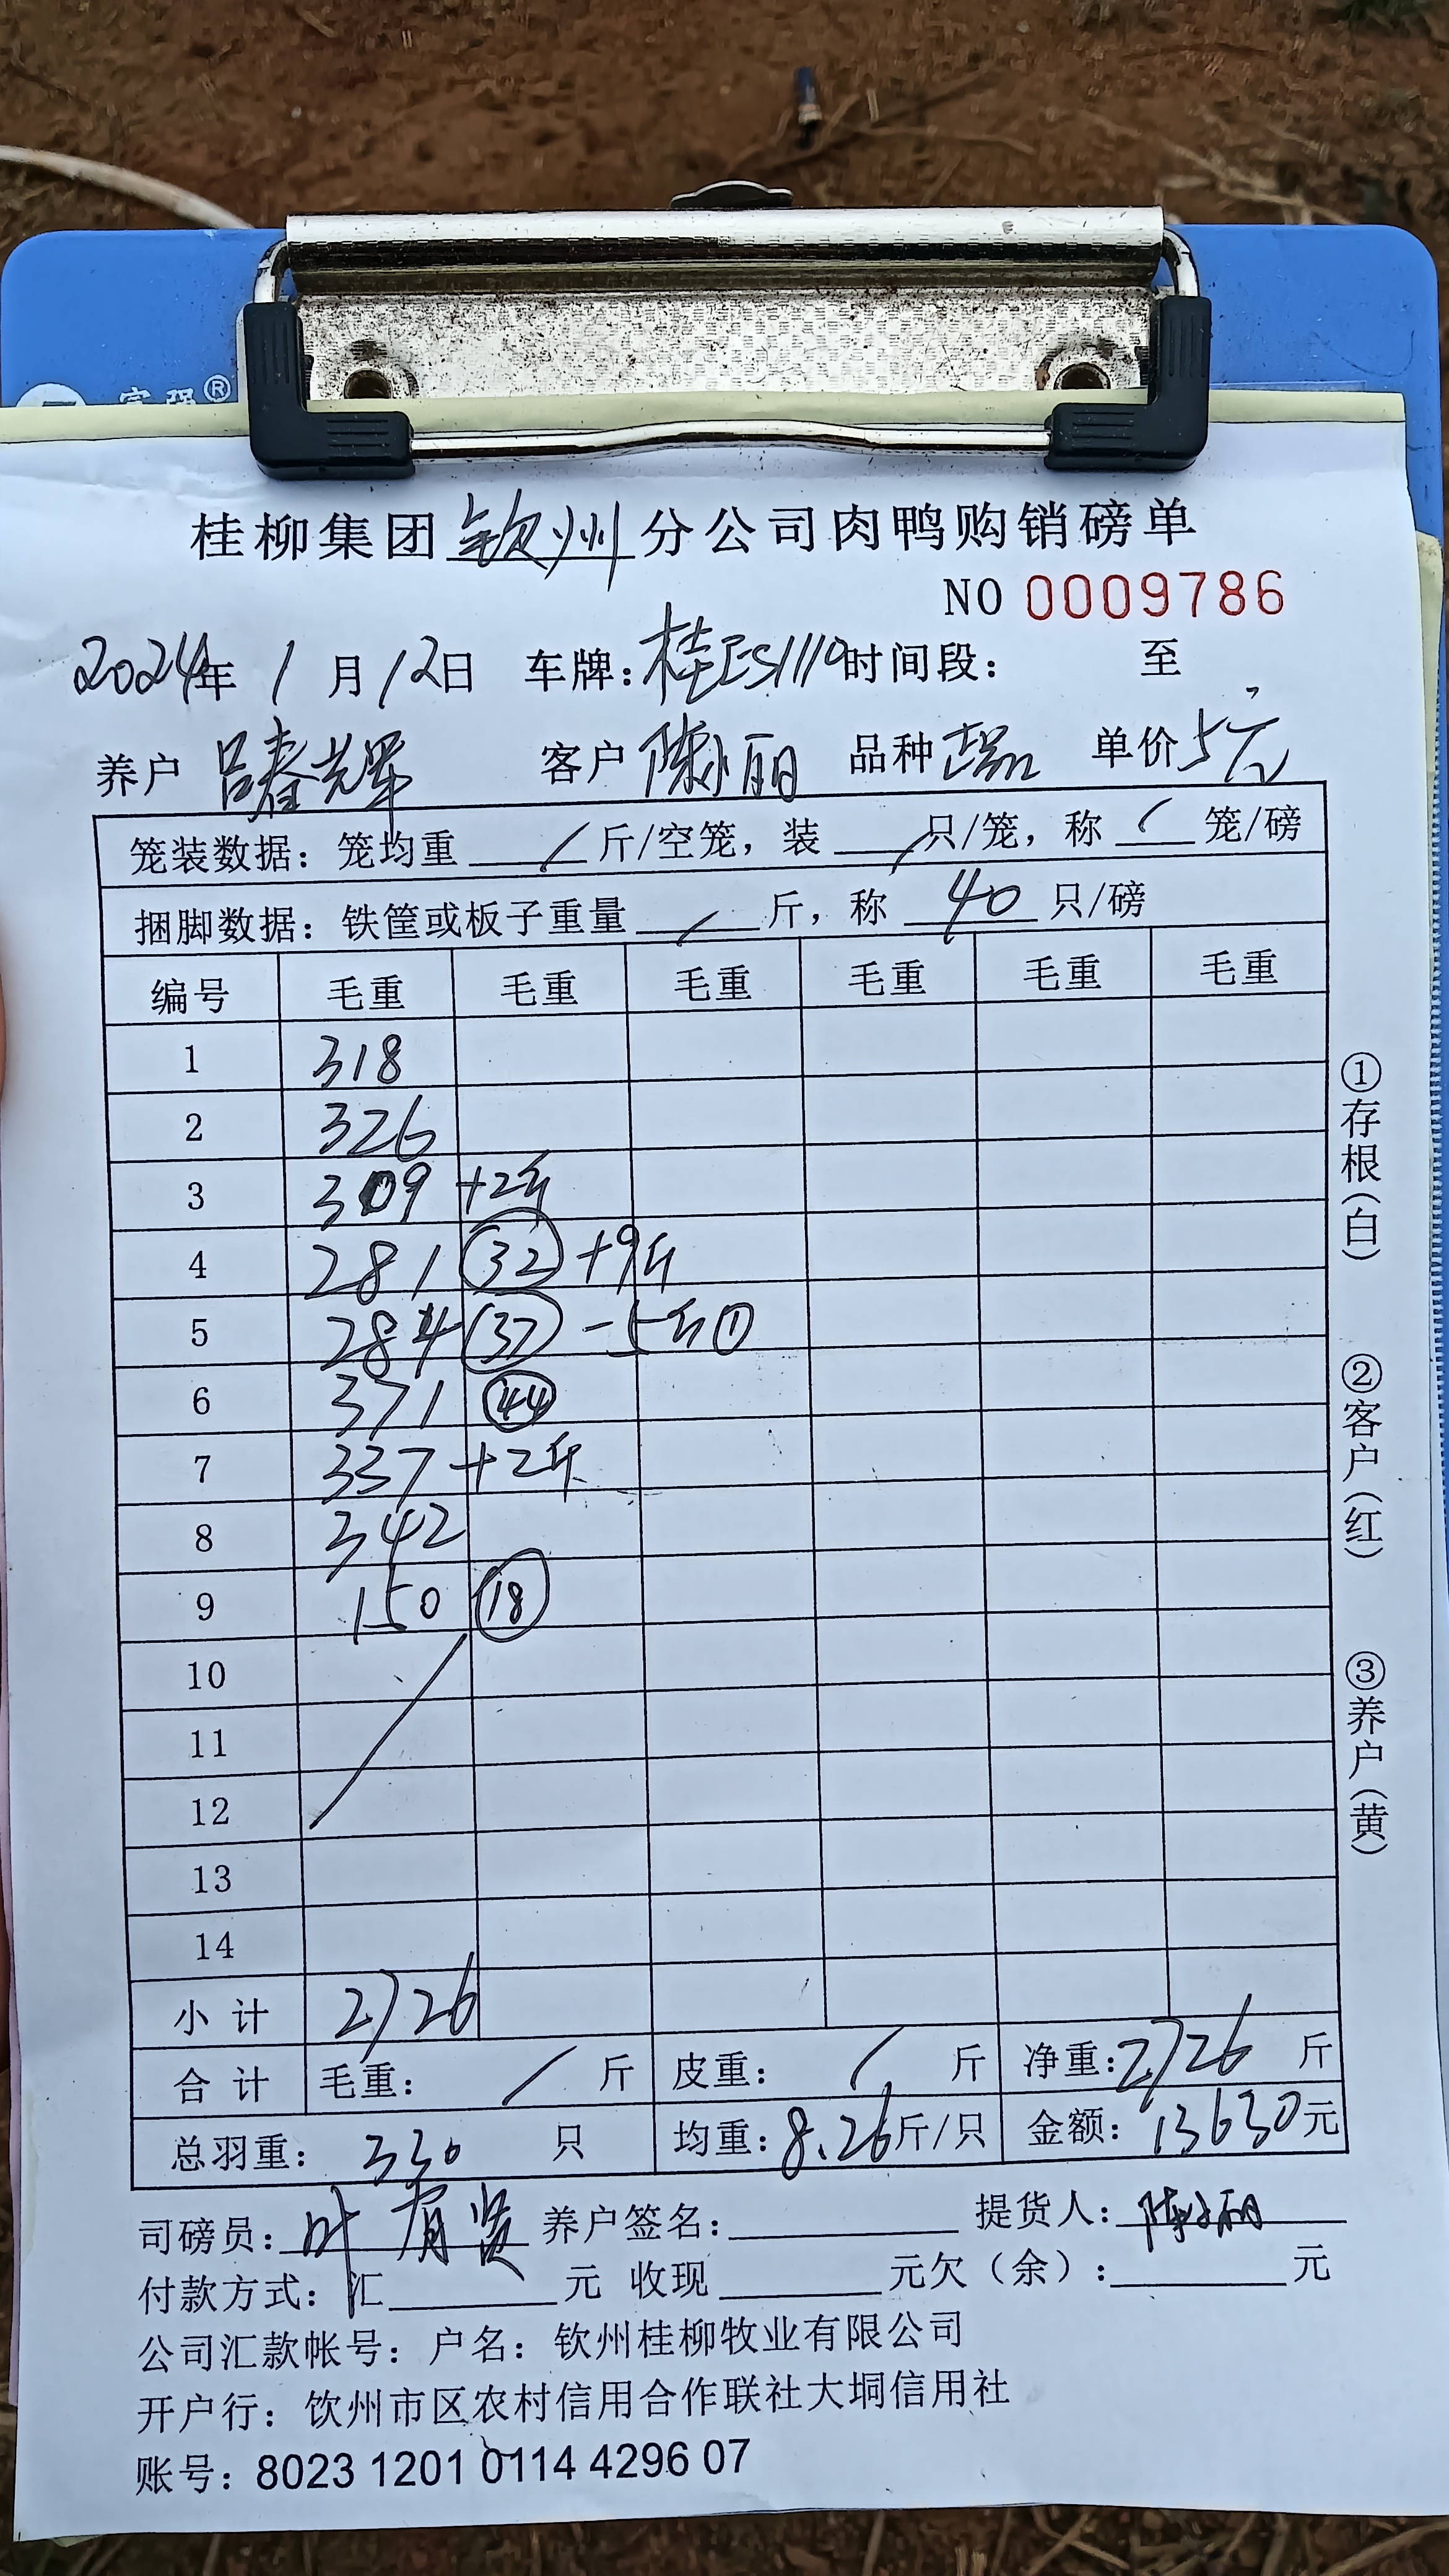 富强®
桂柳集团钦州分公司肉鸭购销磅单
NO 0009786
2024年 1月12日 车牌:桂ES1119时间段: 至
养户 吕春辉 客户 陈小丽 品种 单价5元
笼装数据: 笼均重 / 斤/空笼, 装 / 只/笼, 称 / 笼/磅
捆脚数据: 铁筐或板子重量 / 斤, 称 40 只/磅
编号 毛重 毛重 毛重 毛重 毛重 毛重
1 318
2 326
3 309 +2斤
4 281 (32) +9斤
5 284 (37) -5斤①
6 371 (44)
7 337 +2斤
8 342
9 150 (18)
10
11
12
13
14
小计 2726
合计 毛重: / 斤 皮重: / 斤 净重:2726 斤
总羽重: 330 只 均重:8.26斤/只 金额: 13630元
司磅员: 叶有贤 养户签名: 提货人: 陈小丽
付款方式: 汇 元 收现 元欠(余): 元
公司汇款帐号: 户名: 钦州桂柳牧业有限公司
开户行: 钦州市区农村信用合作联社大垌信用社
账号: 8023 1201 0114 4296 07
①存根(白)
②客户(红)
③养户(黄)